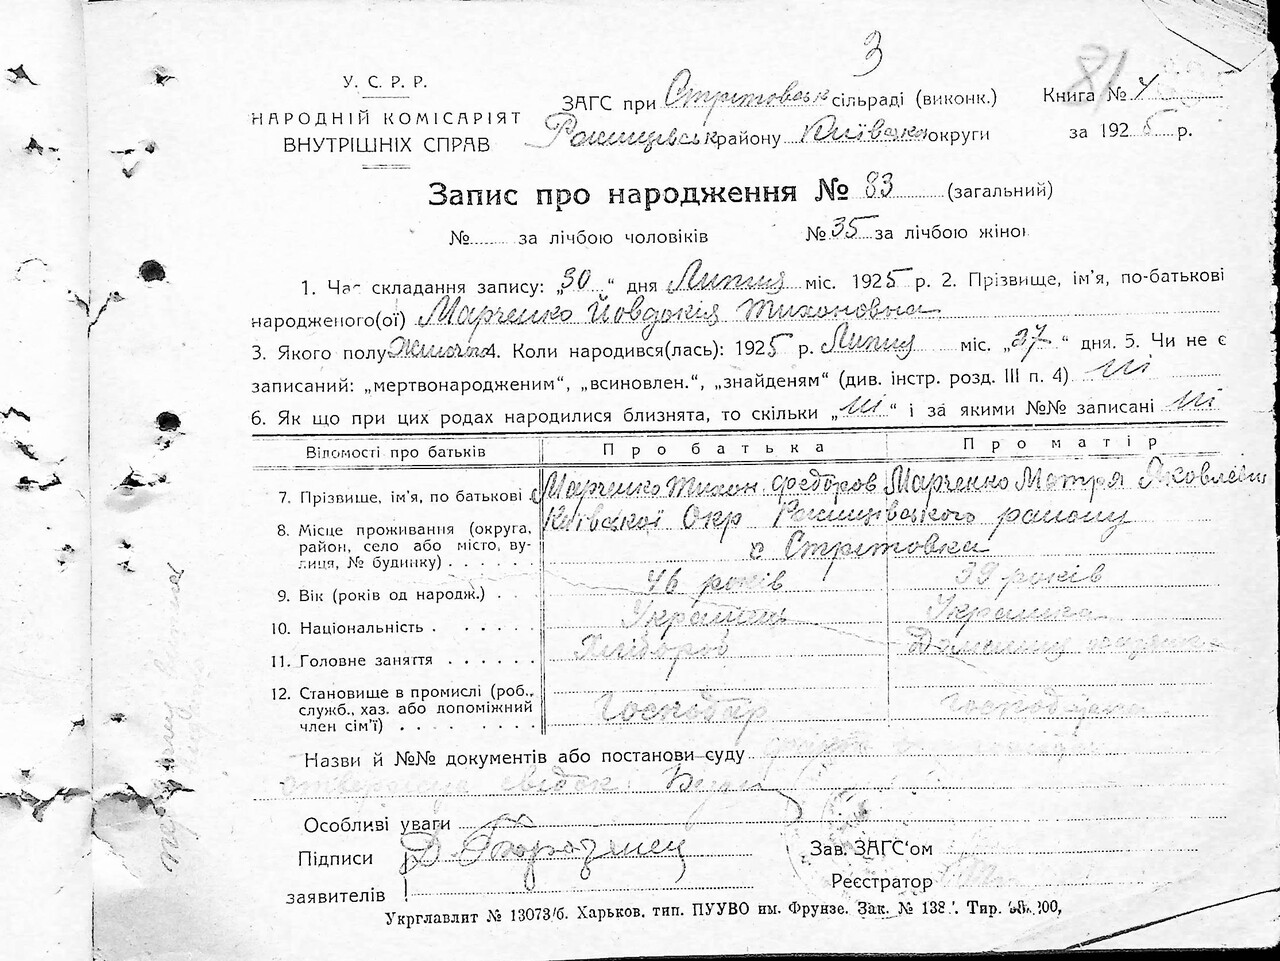 3
81
У. С. Р. Р.
НАРОДНІЙ КОМІСАРІЯТ
ВНУТРІШНІХ СПРАВ
ЗАГС при Стрітовськ сільраді (виконк.)
Книга № 4
району Київська округи
за 1925 р.
Запис про народження № 83 (загальний)
№ за лічбою чоловіків № 35 за лічбою жіно
1. Час складання запису: „30“ дня Липця міс. 1925 р. 2. Прізвище, ім'я, по-батькові
народженого(ої) Марченко Йовдокія Тихоновна
3. Якого полу Жіноча 4. Коли народився(лась): 1925 р. Липця міс. „27“ дня. 5. Чи не є
записаний: „мертвонародженим“, „всиновлен.“, „знайденям“ (див. інстр. розд. III п. 4) ні
6. Як що при цих родах народилися близнята, то скільки „ні“ і за якими №№ записані ні
Відомості про батьків
Про батька
Про матір
7. Прізвище, ім'я, по батькові
Марченко Тихон Федоров
Марченко Мотря Яковлевна
8. Місце проживання (округа, район, село або місто, вулиця, № будинку)
Київської Окр району
с Стрітовка
9. Вік (років од народж.)
46 років
39 років
10. Національність
Українець
Українка
11. Головне заняття
Хлібороб
12. Становище в промислі (роб., служб., хаз. або допоміжний член сім'ї)
Господар
Господиня
Назви й №№ документів або постанови суду
Особливі уваги
Підписи
заявителів
Зав. ЗАГС'ом
Реєстратор
Укрглавлит № 13073/б. Харьков, тип. ПУУВО им. Фрунзе. Зак. № 138 Тир.